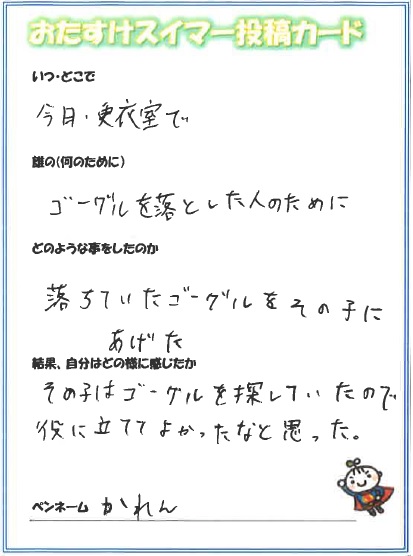 おたすけスイマー投稿カード
いつ・どこで
今日・更衣室で
誰の(何のために)
ゴーグルを落とした人のために
どのような事をしたのか
落ちていたゴーグルをその子に
あげた
結果、自分はどの様に感じたか
その子はゴーグルを探していたので
役に立ててよかったなと思った。
ペンネーム かれん